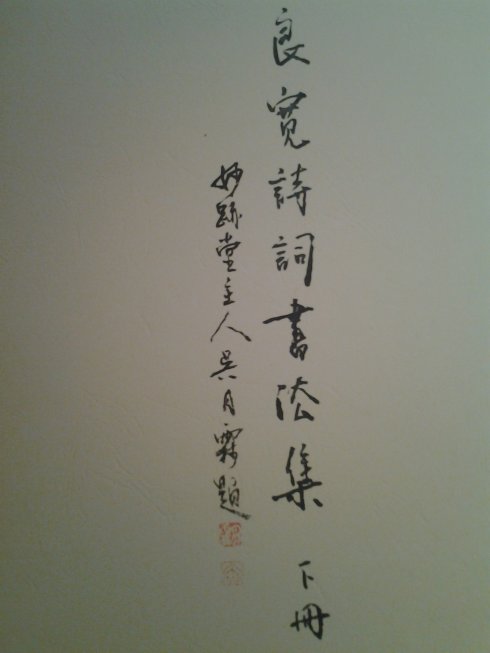 良寬詩詞書法集 下冊
妙跡堂主人吳月霖題